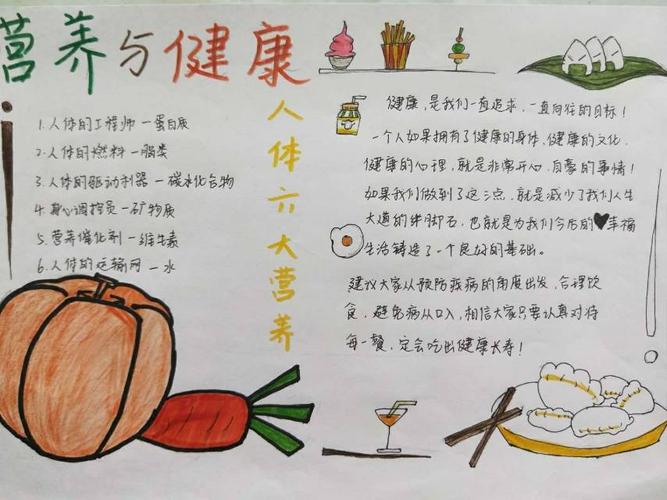 营养与健康
1.人体的工程师—蛋白质
2.人体的燃料—脂类
3.人体的驱动利器—碳水化合物
4.身心调控员—矿物质
5.营养催化剂—维生素
6.人体的运输网—水
人体六大营养
健康,是我们一直追求、一直向往的目标!
一个人如果拥有了健康的身体、健康的文化、
健康的心理,就是非常开心、自豪的事情!
如果我们做到了这三点,就是减少了我们人生
大道的绊脚石,也就是为我们今后的幸福
生活铸造了一个良好的基础。
建议大家从预防疾病的角度出发,合理饮
食,避免病从口入,相信大家只要认真对待
每一餐,定会吃出健康长寿!